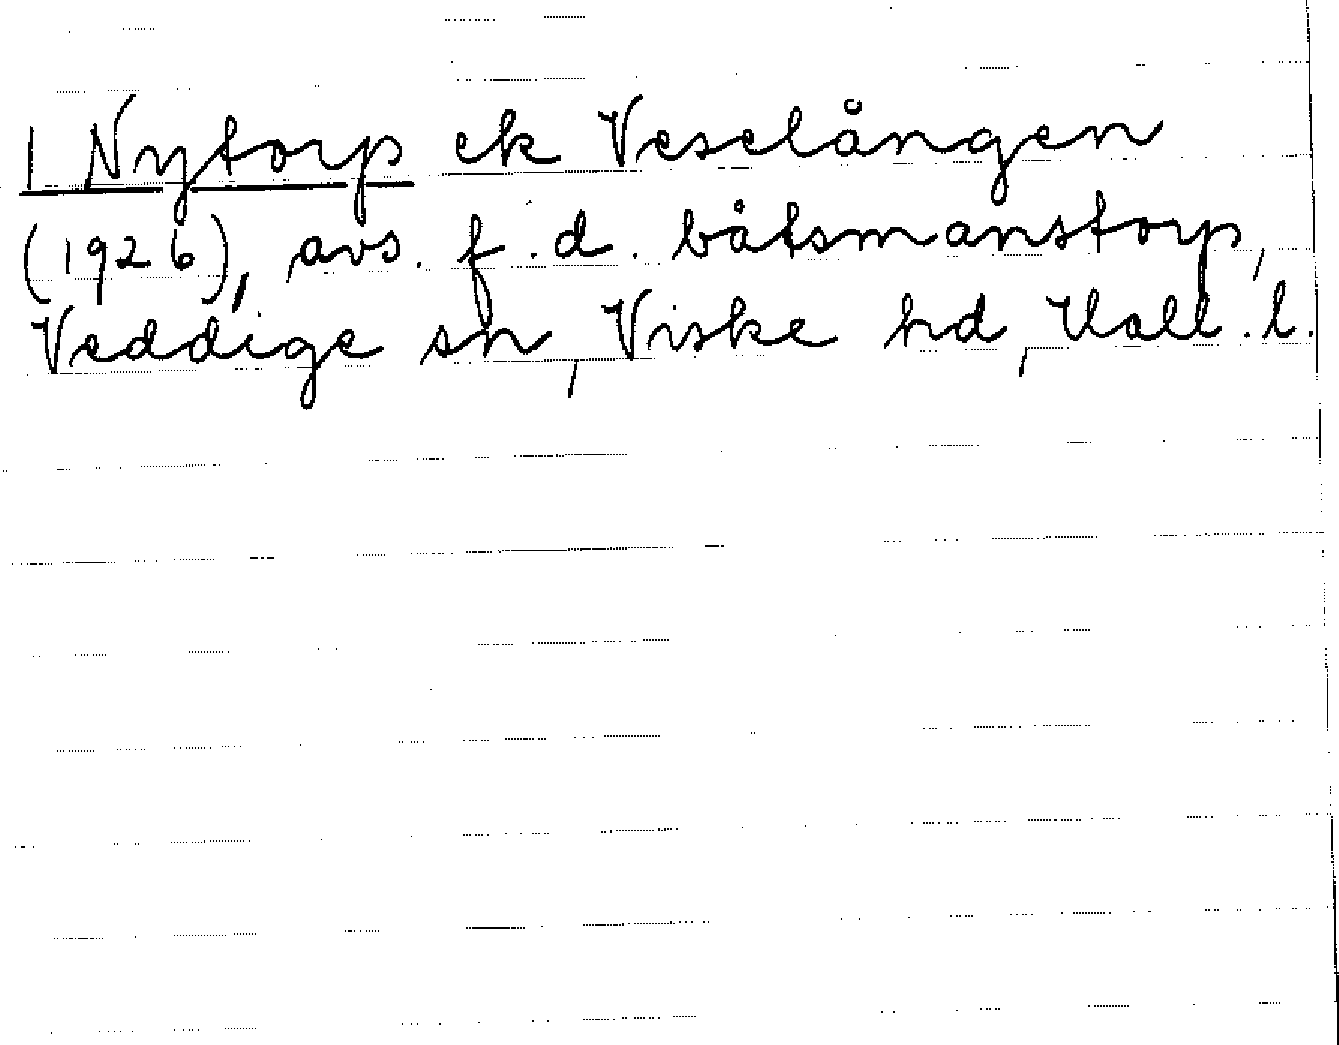 1 Nytorp ek Veselången
(1926), avs. f.d. båtsmanstorp,
Veddige sn, Viske hd, Hall.l.